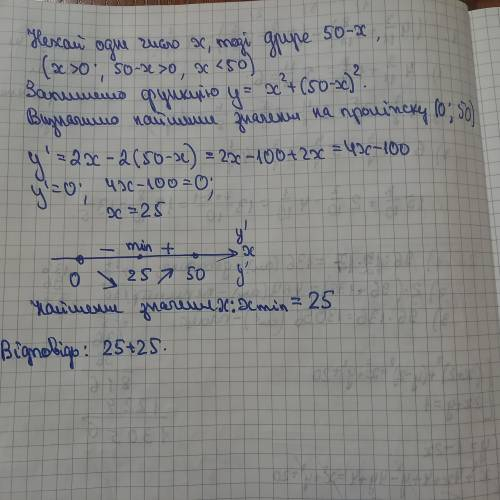 Нехай одне число x, тоді друге 50-x,
(x>0; 50-x>0, x<50)
Запишемо функцію y = x²+(50-x)².
Визначимо найменше значення на проміжку (0; 50)
y' = 2x - 2(50-x) = 2x - 100 + 2x = 4x - 100
y' = 0; 4x - 100 = 0;
x = 25
y'
- min + x
0 ↘ 25 ↗ 50 y'
Найменше значення x: xmin = 25
Відповідь: 25+25.